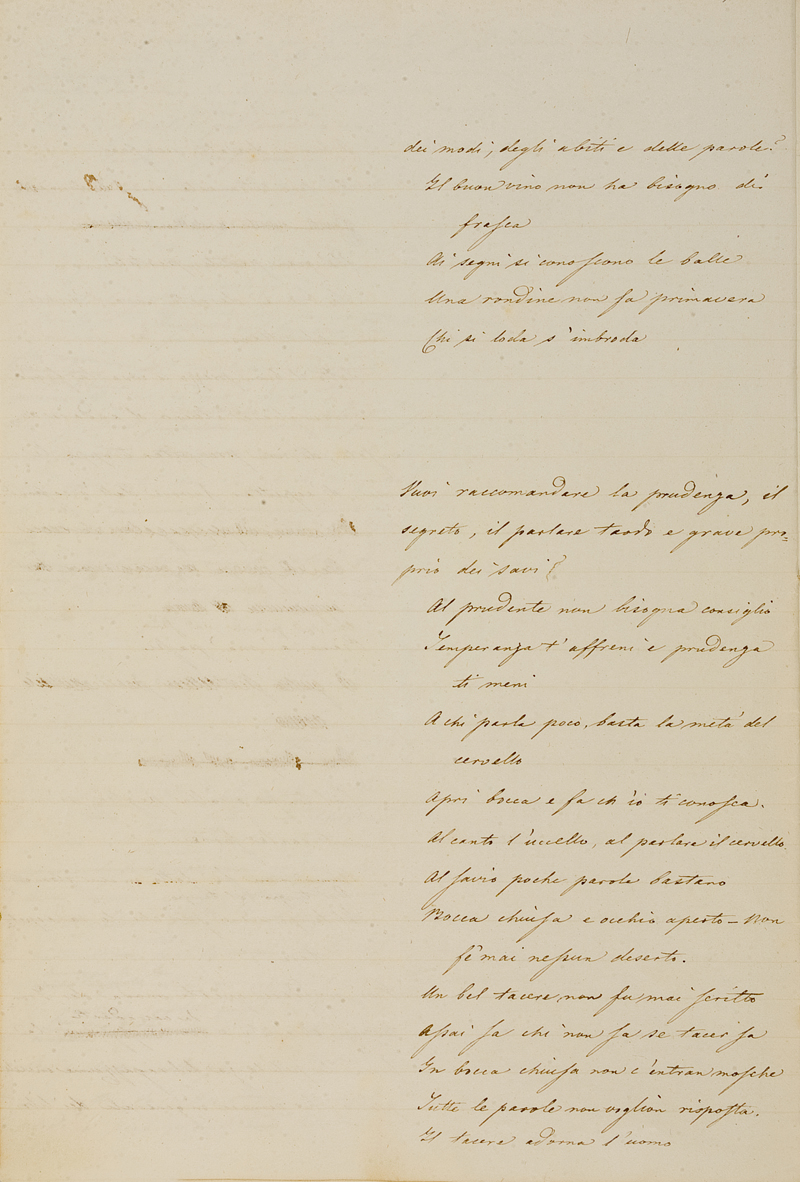 dei modi, degli abiti e delle parole?
Il buon vino non ha bisogno di
frasca
Ai segni si conoscono le balle
Una rondine non fa primavera
Chi si loda s'imbroda
Vuoi raccomandare la prudenza, il
segreto, il parlare tardo e grave pro=
prio dei savi?
Al prudente non bisogna consiglio
Temperanza t'affreni e prudenza
ti meni
A chi parla poco, basta la metà del
cervello
Apri bocca e fa ch'io ti conosca.
Al canto l'uccello, al parlare il cervello.
Al savio poche parole bastano
Bocca chiusa e occhio aperto – Non
fê mai nessun deserto.
Un bel tacere non fu mai scritto
Assai sa chi non sa se tacer sa
In bocca chiusa non c'entran mosche
Tutte le parole non voglion risposta.
Il tacere adorna l'uomo